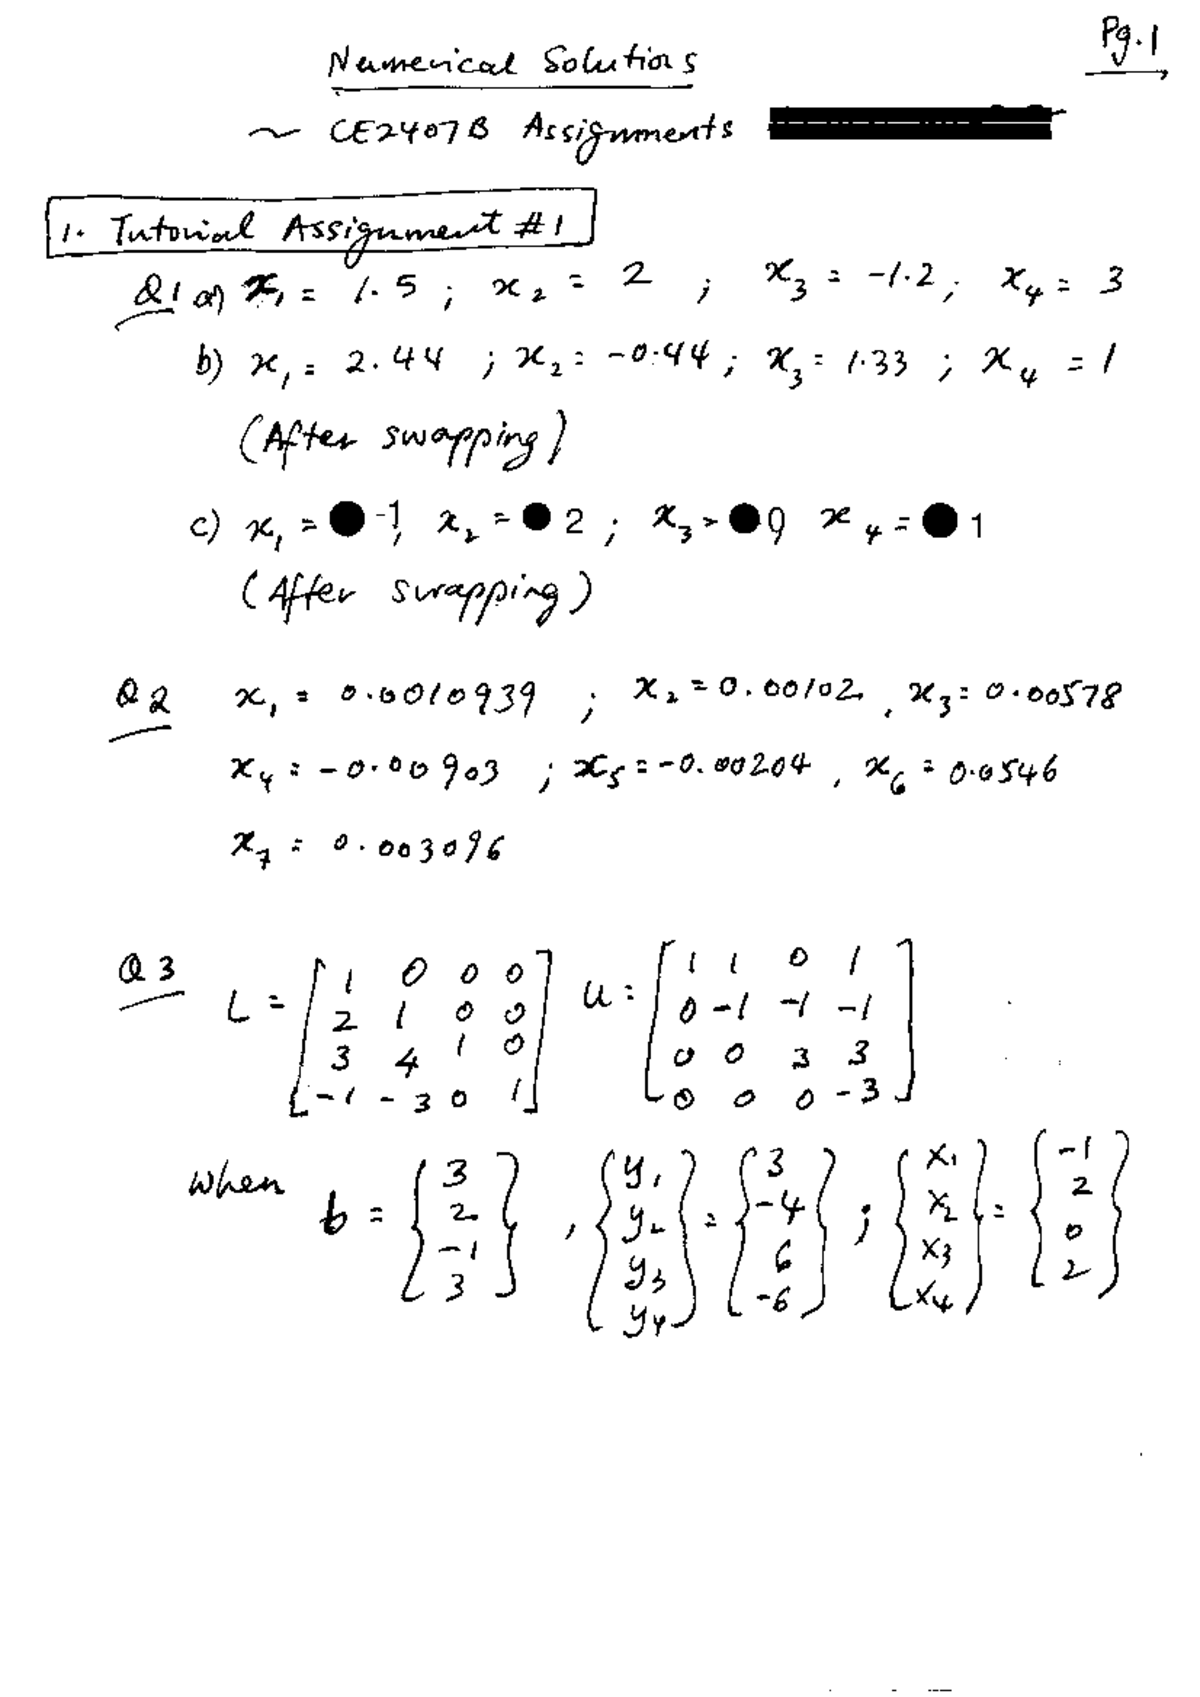 Pg.1
Numerical Solutions
~ CE2407B Assignments
1. Tutorial Assignment #1
Q1 a) x₁ = 1.5 ; x₂ = 2 ; x₃ = -1.2 ; x₄ = 3
b) x₁ = 2.44 ; x₂ = -0.44 ; x₃ = 1.33 ; x₄ = 1
(After swapping)
c) x₁ = -1, x₂ = 2 ; x₃ = 0 x₄ = 1
(After swapping)
Q2 x₁ = 0.0010939 ; x₂ = 0.00102, x₃ = 0.00578
x₄ = -0.00903 ; x₅ = -0.00204, x₆ = 0.0546
x₇ = 0.003096
Q3 L = [1 0 0 0 U = [1 1 0 1
2 1 0 0 0 -1 -1 -1
3 4 1 0 0 0 3 3
-1 -3 0 1] 0 0 0 -3]
when b = {3 2 -1 3}, {y₁ y₂ y₃ y₄} = {3 -4 6 -6} ; {x₁ x₂ x₃ x₄} = {-1 2 0 2}